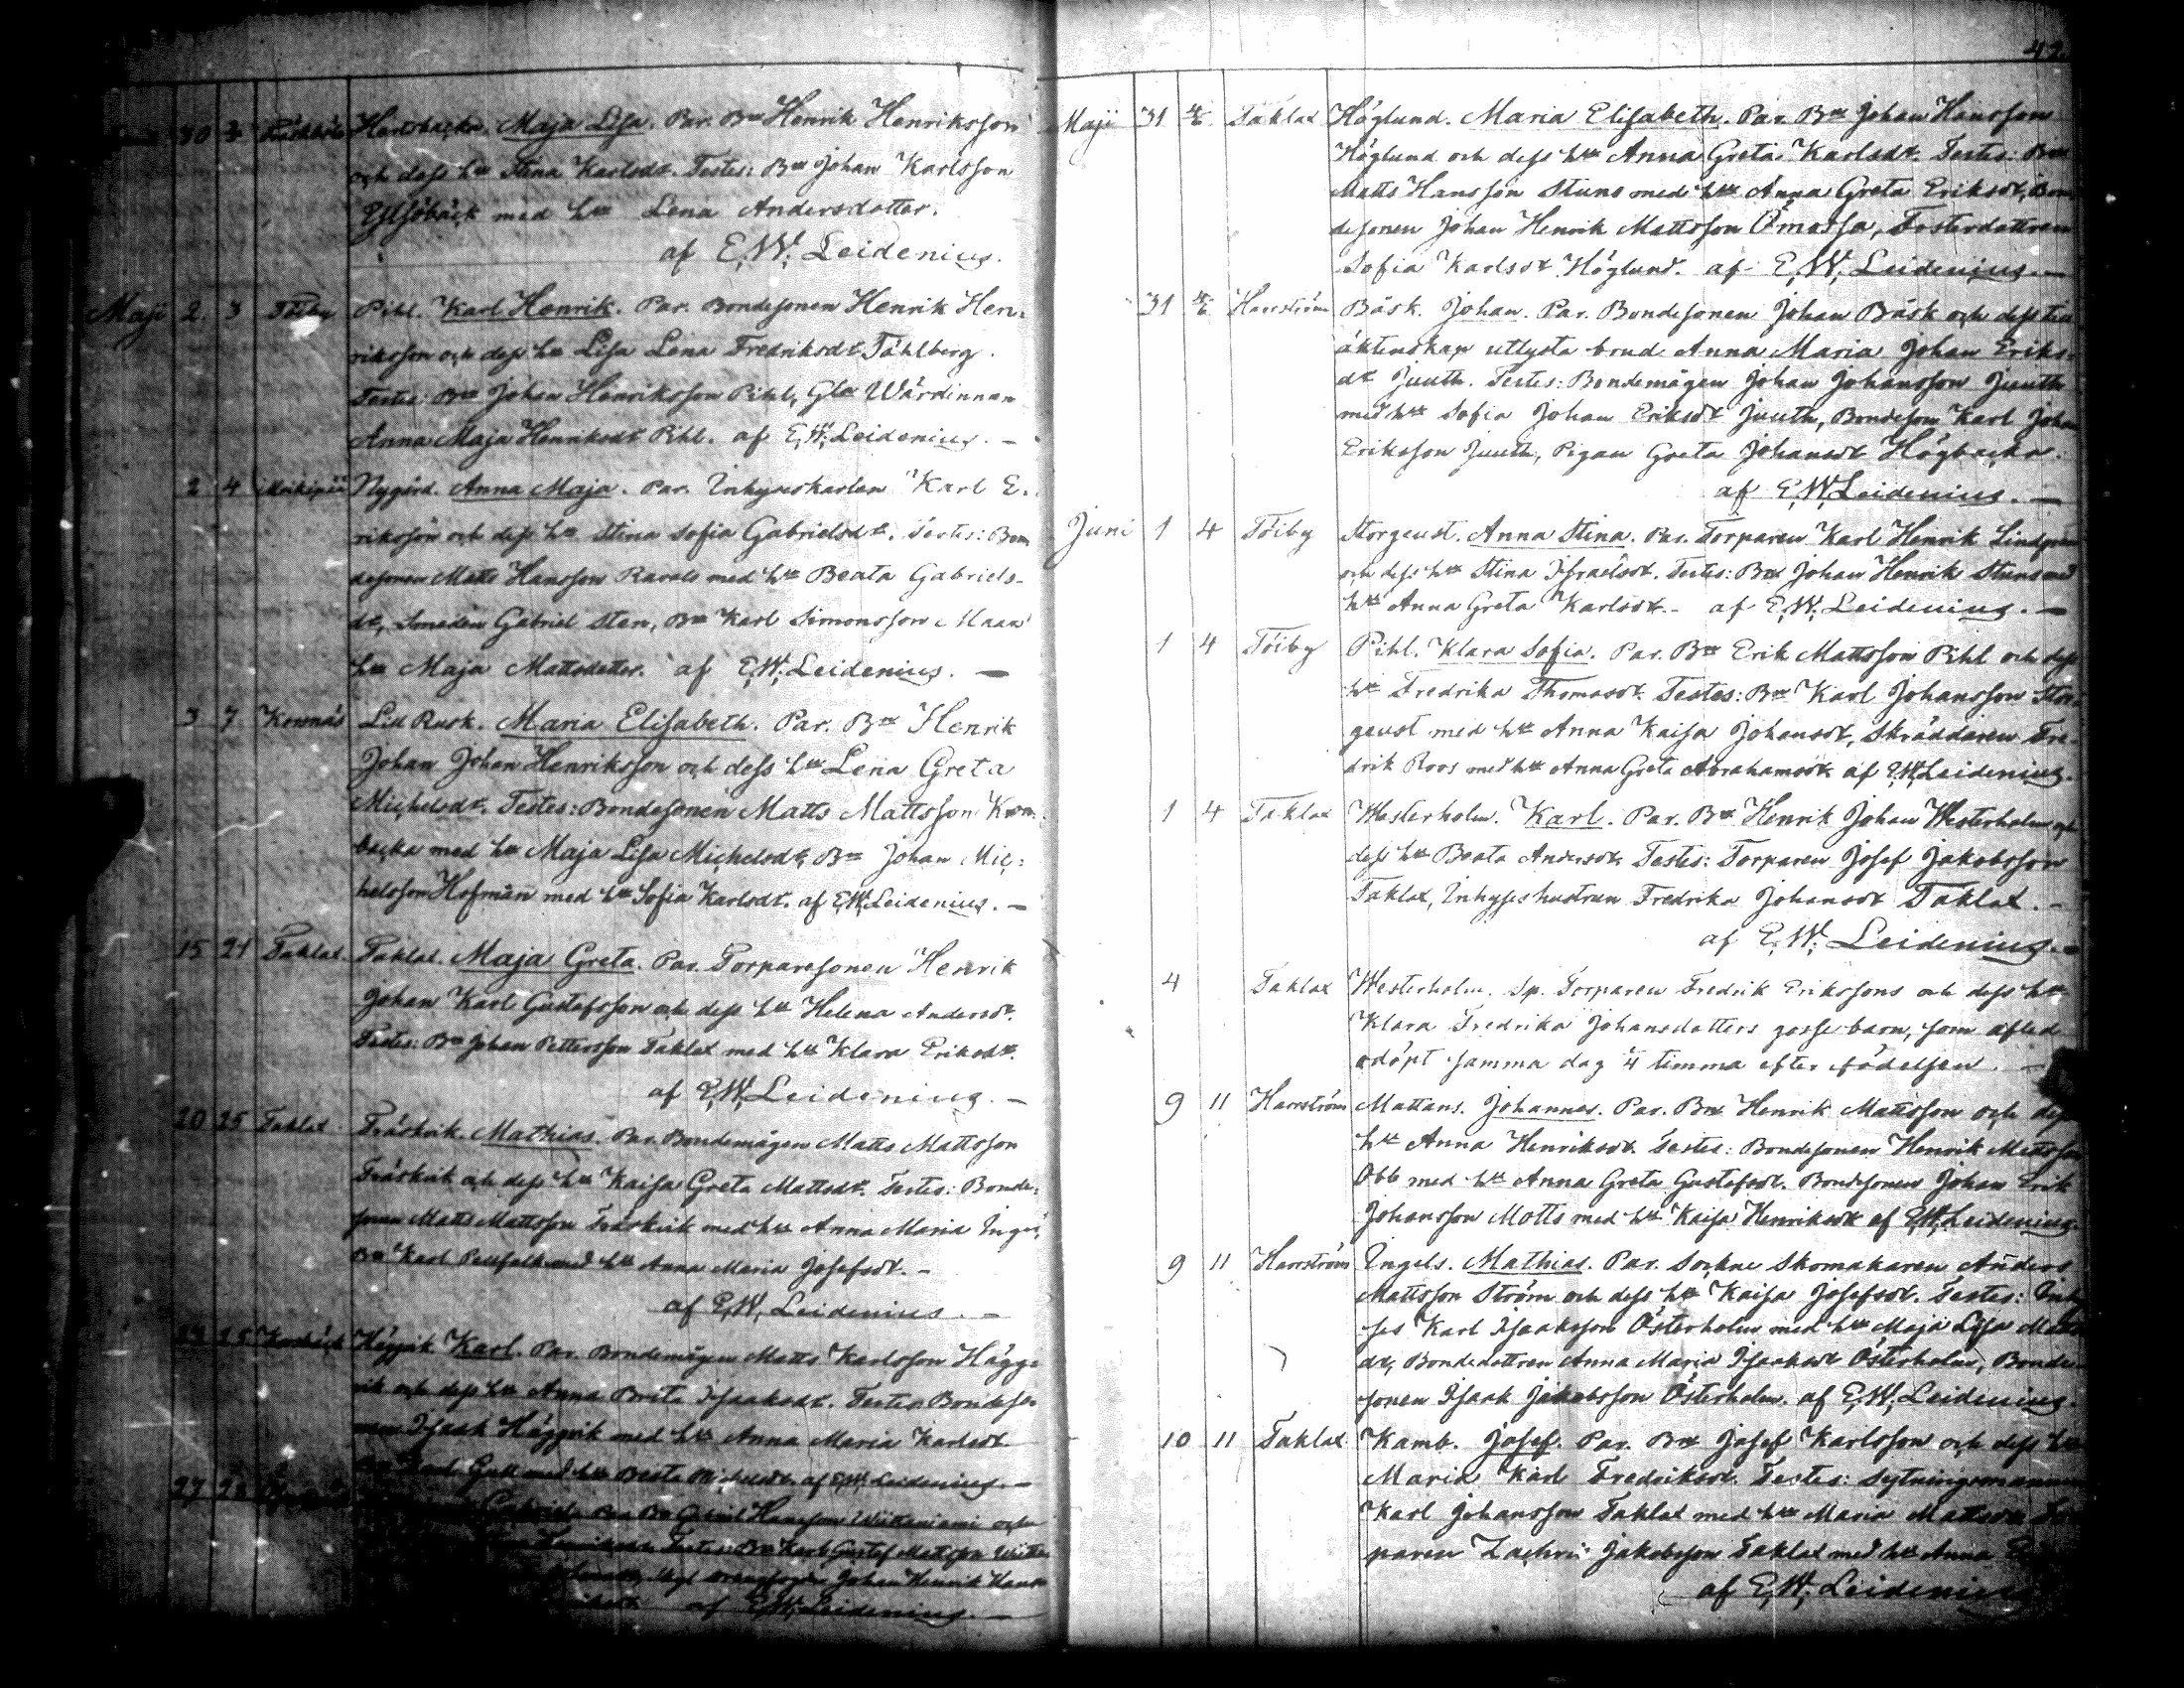 30 3 Hertsbacka. Maja Lisa. Par. Bn Henrik Henriksson
och dess hu Stina Karlsdr. Testes: Bn Johan Karlsson
med hu Lena Andersdotter.
af E.W. Leidenius.
Maji 2 3 Töiby Pihl. Karl Henrik. Par. Bondesonen Henrik Hen-
riksson och dess hu Lisa Lena Fredriksdr Tåhlberg.
Testes: Bn Johan Henriksson Pihl, Gla Wärdinnan
Anna Maja Henriksdr Pihl. af E.W. Leidenius. —
2 4 Nygård. Anna Maja. Par. Inhyseskarlen Karl E-
riksson och dess hu Stina Sofia Gabrielsdr. Testes: Bon
desonen Matts Hansson Ravals med hu Beata Gabriels-
dr, Smeden Gabriel Sten, Bn Karl Simonsson
hu Maja Mattsdotter. af E.W. Leidenius. —
3 7 Korsnäs Lill Rusk. Maria Elisabeth. Par. Bn Henrik
Johan Johan Henriksson och dess hu Lena Greta
Michelsdr. Testes: Bondesonen Matts Mattsson
backa med hu Maja Lisa Michelsdr, Bn Johan Mic-
helsson Hofman med hu Sofia Karlsdr. af E.W. Leidenius. —
15 21 Taklax Taklax. Maja Greta. Par. Torparesonen Henrik
Johan Karl Gustafsson och dess hu Helena Andersdr.
Testes: Bn Johan Pettersson Taklax med hu Klara Eriksdr.
af E.W. Leidenius. —
20 25 Taklax Träskvik. Mathias. Par. Bondemågen Matts Mattsson
Träskvik och dess hu Kaisa Greta Mattsdr. Testes: Bonde-
sonen Matts Mattsson Träskvik med hu Anna Maria
Bn Karl med hu Anna Maria Josefsdr. —
af E.W. Leidenius. —
25 Häggvik Karl. Par. Bondemågen Matts Karlsson Hägg-
vik och dess hu Anna Brita Isaaksdr. Testes Bondeso-
nen Isaak Häggvik med hu Anna Maria Karlsdr
Bn Karl Gull med hu Beata Michelsdr af E.W. Leidenius. —
27 28 Par. Bn Gabriel Hansson och
Testes: Bn Karl Gustaf Mattsson
Johan Henrik
af E.W. Leidenius. —
42
Maji 31 4/6 Taklax Höglund. Maria Elisabeth. Par. Bn Johan Hansson
Höglund och dess hu Anna Greta Karlsdr. Testes: Bn
Matts Hansson Stuns med hu Anna Greta Eriksdr, Bon
desonen Johan Henrik Mattsson Ömossa, Fosterdottren
Sofia Karlsdr Höglund. af E.W. Leidenius. —
31 4/6 Harrström Bäsk. Johan. Par. Bondesonen Johan Bäsk och dess till
äktenskap utlysta brud Anna Maria Johan Eriks-
dr Juuth. Testes: Bondemågen Johan Johansson Juuth
med hu Sofia Johan Eriksdr Juuth, Bondeson Karl Johan
Eriksson Juuth, Pigan Greta Johansdr Högbacka.
af E.W. Leidenius. —
Juni 1 4 Töiby Storgeust. Anna Stina. Par. Torparen Karl Henrik Lindgren
och dess hu Stina Israelsdr. Testes: Bn Johan Henrik Stuns med
hu Anna Greta Karlsdr. — af E.W. Leidenius. —
1 4 Töiby Pihl. Klara Sofia. Par. Bn Erik Mattsson Pihl och dess
hu Fredrika Thomasdr. Testes: Bn Karl Johansson Stor-
geust med hu Anna Kaisa Johansdr, Skräddaren Fre-
drik Roos med hu Anna Greta Abrahamsdr. af E.W. Leidenius.
1 4 Taklax Westerholm. Karl. Par. Bn Henrik Johan Westerholm och
dess hu Beata Andersdr. Testes: Torparen Josef Jakobsson
Taklax, Inhyseshustrun Fredrika Johansdr Taklax. —
af E.W. Leidenius. —
4 Taklax Westerholm. Sp. Torparen Fredrik Erikssons och dess hu
Klara Fredrika Johansdotters gossebarn, som afled
odöpt samma dag 4 timma efter födelsen. —
9 11 Harrström Mattans. Johannes. Par. Bn Henrik Mattsson och dess
hu Anna Henriksdr. Testes: Bondesonen Henrik Mattsson
Obb med hu Anna Greta Gustafsdr. Bondesonen Johan Erik
Johansson Motts med hu Kaisa Henriksdr af E.W. Leidenius.
9 11 Harrström Ingels. Mathias. Par. Sockne Skomakaren Anders
Mattsson Ström och dess hu Kaisa Josefsdr. Testes: Inhy
ses Karl Isaaksson Österholm med hu Maja Lisa Matts
dr, Bondedottren Anna Maria Isaaksdr Österholm, Bonde-
sonen Isaak Jakobsson Österholm. af E.W. Leidenius.
10 11 Taklax Kamb. Josef. Par. Bn Josef Karlsson och dess hu
Maria Karl Fredriksdr. Testes: Sytningsmannen
Karl Johansson Taklax med hu Maria Mattsdr Tor
paren Zachris Jakobsson Taklax med hu Anna
af E.W. Leidenius